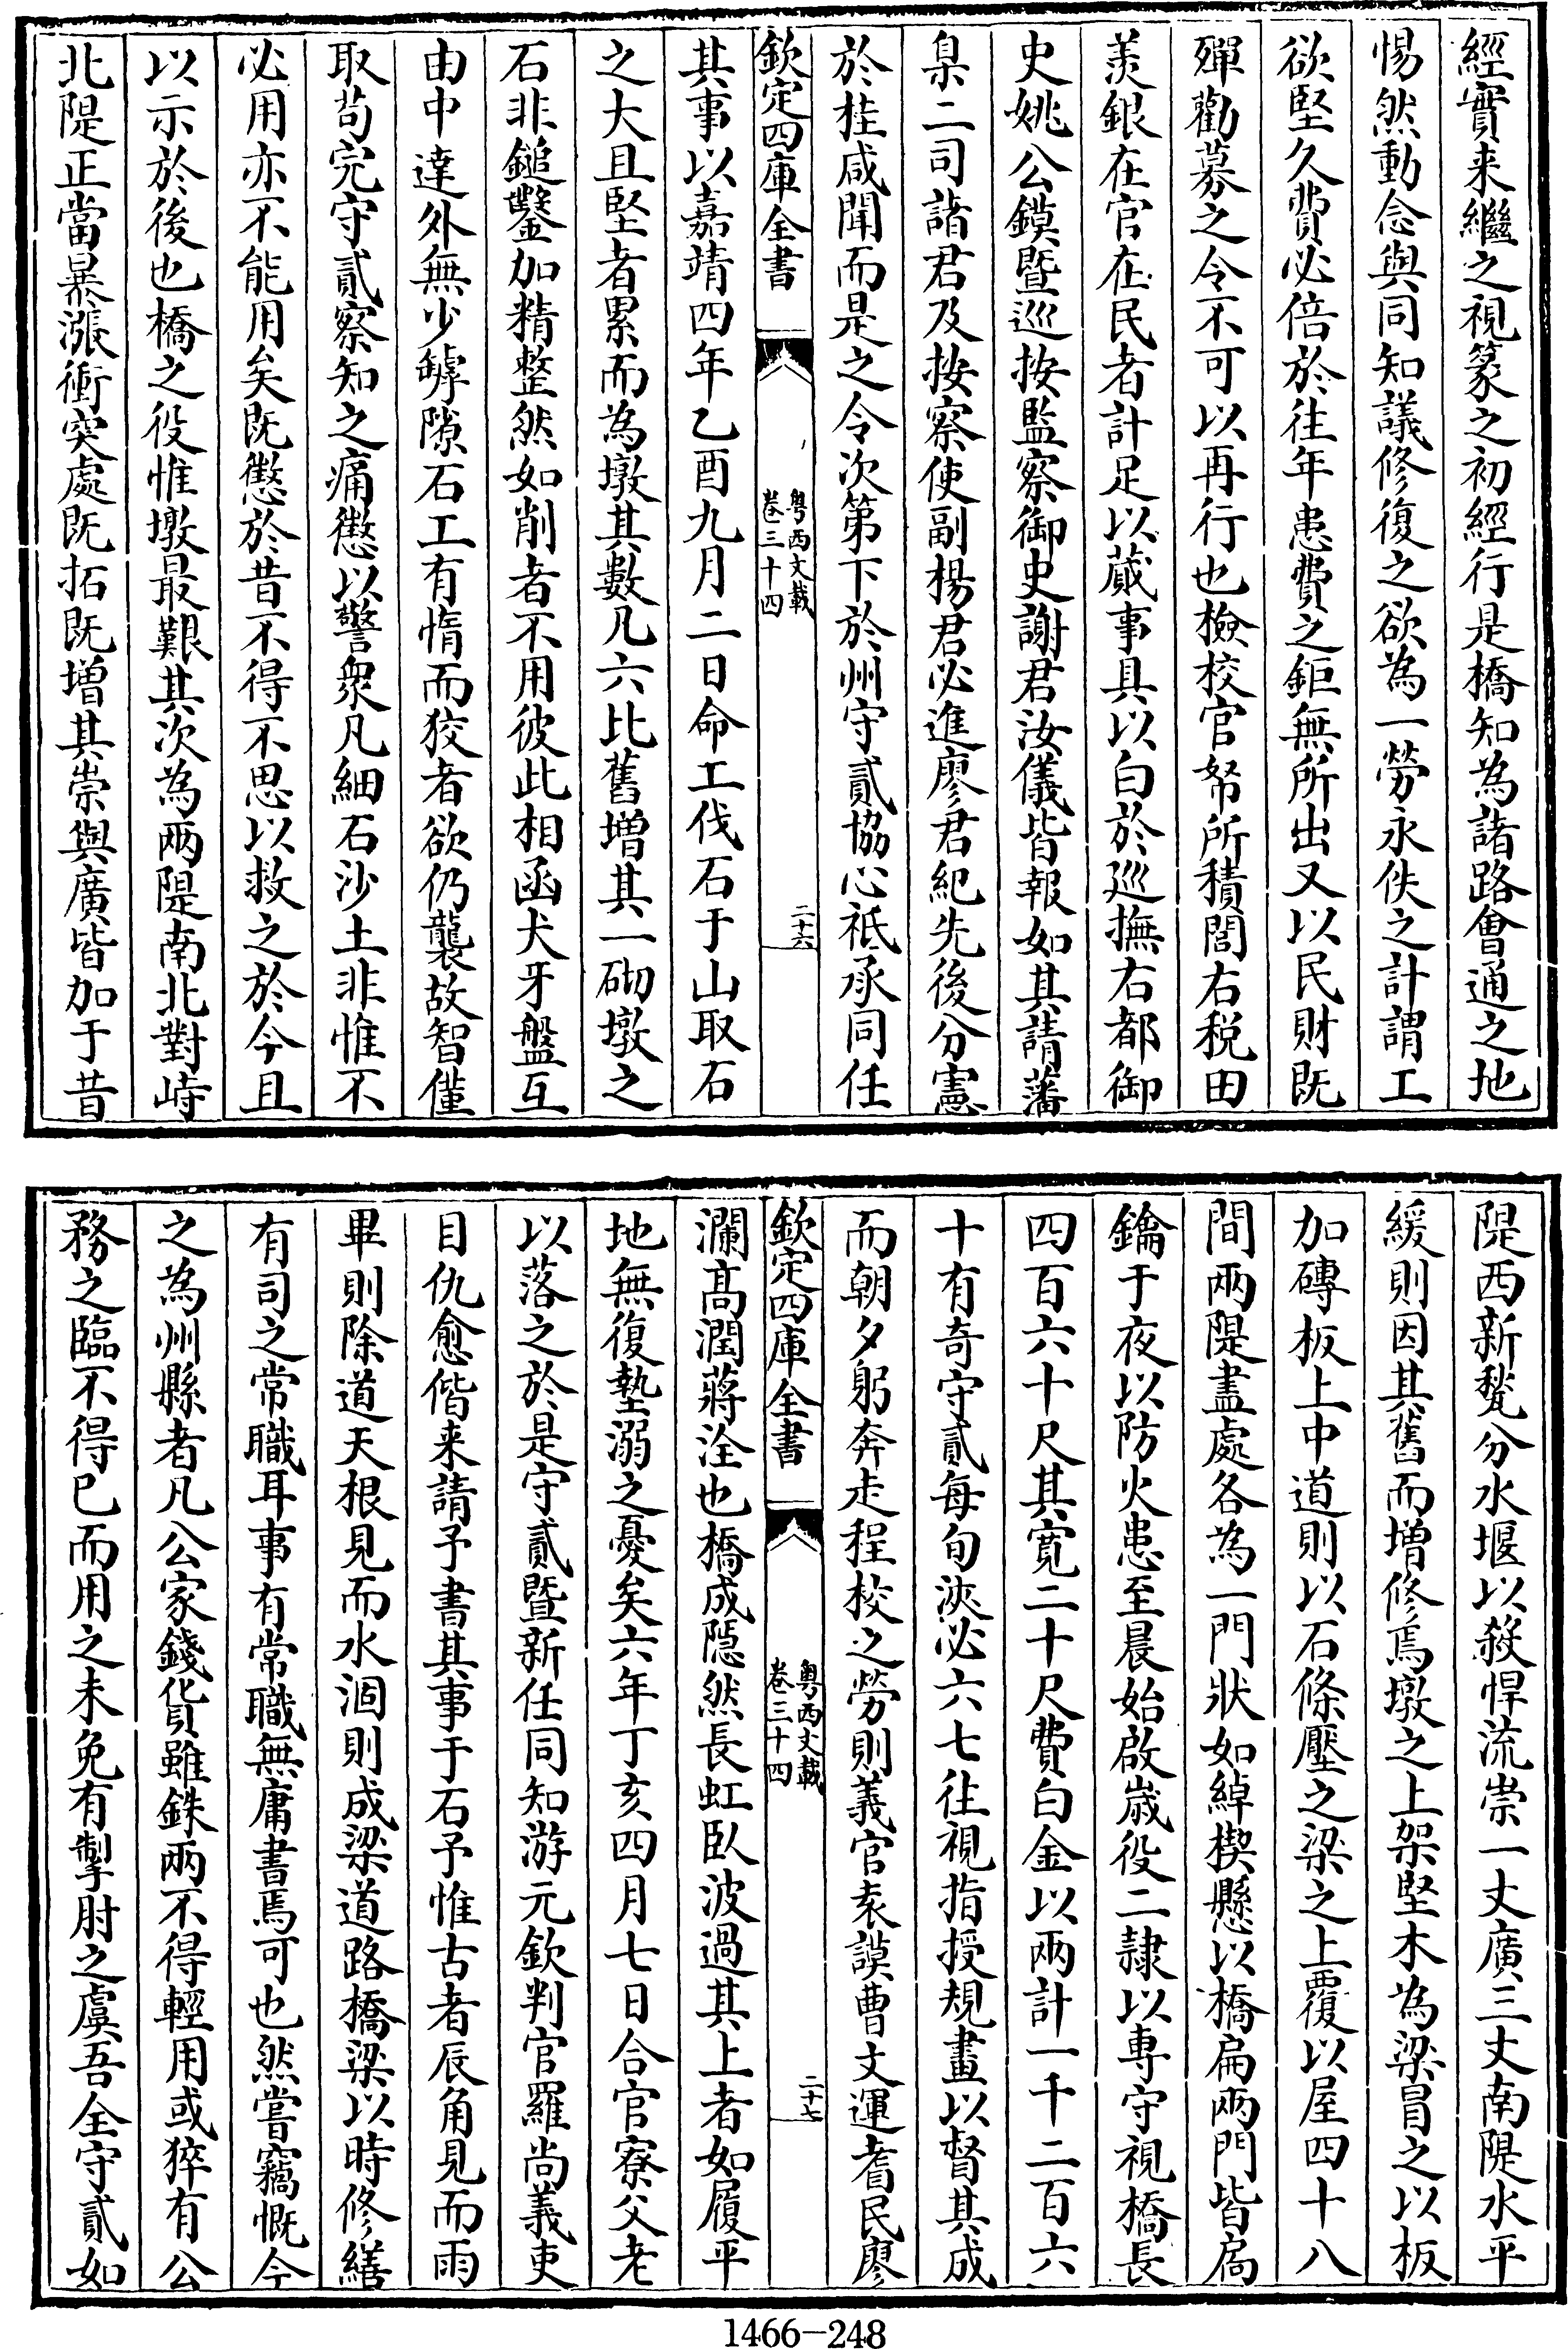 經實来繼之視篆之初經行是橋知為諸路㑹通之地
惕然動念與同知議修復之欲為一勞永佚之計謂工
欲堅久費必倍於往年患費之鉅無所出又以民財既
殫勸募之令不可以再行也檢校官帑所積閭右税田
羡銀在官在民者計足以蕆事具以白於廵撫右都御
史姚公鏌暨巡按監察御史謝君汝儀皆報如其請藩
臬二司諸君及按察使副楊君必進廖君紀先後分憲
於桂咸聞而是之令次第下於州守貳協心祗承同任
欽定四庫全書
粤西文載
卷三十四
二十六
其事以嘉靖四年乙酉九月二日命工伐石于山取石
之大且堅者累而為墩其數凡六比舊増其一砌墩之
石非鎚鑿加精整然如削者不用彼此相函犬牙盤互
由中達外無少罅隙石工有惰而狡者欲仍襲故智僅
取苟完守貳察知之痛懲以警衆凡細石沙土非惟不
必用亦不能用矣既懲於昔不得不思以救之於今且
以示於後也橋之役惟墩最艱其次為兩隄南北對峙
北隄正當暴漲衝突處既拓既増其崇與廣皆加于昔
隄西新甃分水堰以殺悍流崇一丈廣三丈南隄水平
緩則因其舊而増修焉墩之上架堅木為梁冒之以板
加磚板上中道則以石條壓之梁之上覆以屋四十八
間兩隄盡處各為一門狀如綽楔懸以橋扁兩門皆扄
鑰于夜以防火患至晨始啟嵗役二隷以專守視橋長
四百六十尺其寛二十尺費白金以兩計一千二百六
十有奇守貳每旬浹必六七往視指授規畫以督其成
而朝夕躬奔走程校之勞則義官袁謨曹文運耆民廖
欽定四庫全書
粤西文載
卷三十四
二十七
瀾髙潤蔣洤也橋成隠然長虹臥波過其上者如履平
地無復墊溺之憂矣六年丁亥四月七日合官寮父老
以落之於是守貳暨新任同知游元欽判官羅尚義吏
目仇愈偕来請予書其事于石予惟古者辰角見而雨
畢則除道天根見而水涸則成梁道路橋梁以時修繕
有司之常職耳事有常職無庸書焉可也然嘗竊慨今
之為州縣者凡公家錢貨雖銖兩不得輕用或猝有公
務之臨不得已而用之未免有掣肘之虞吾全守貳如
1466-248